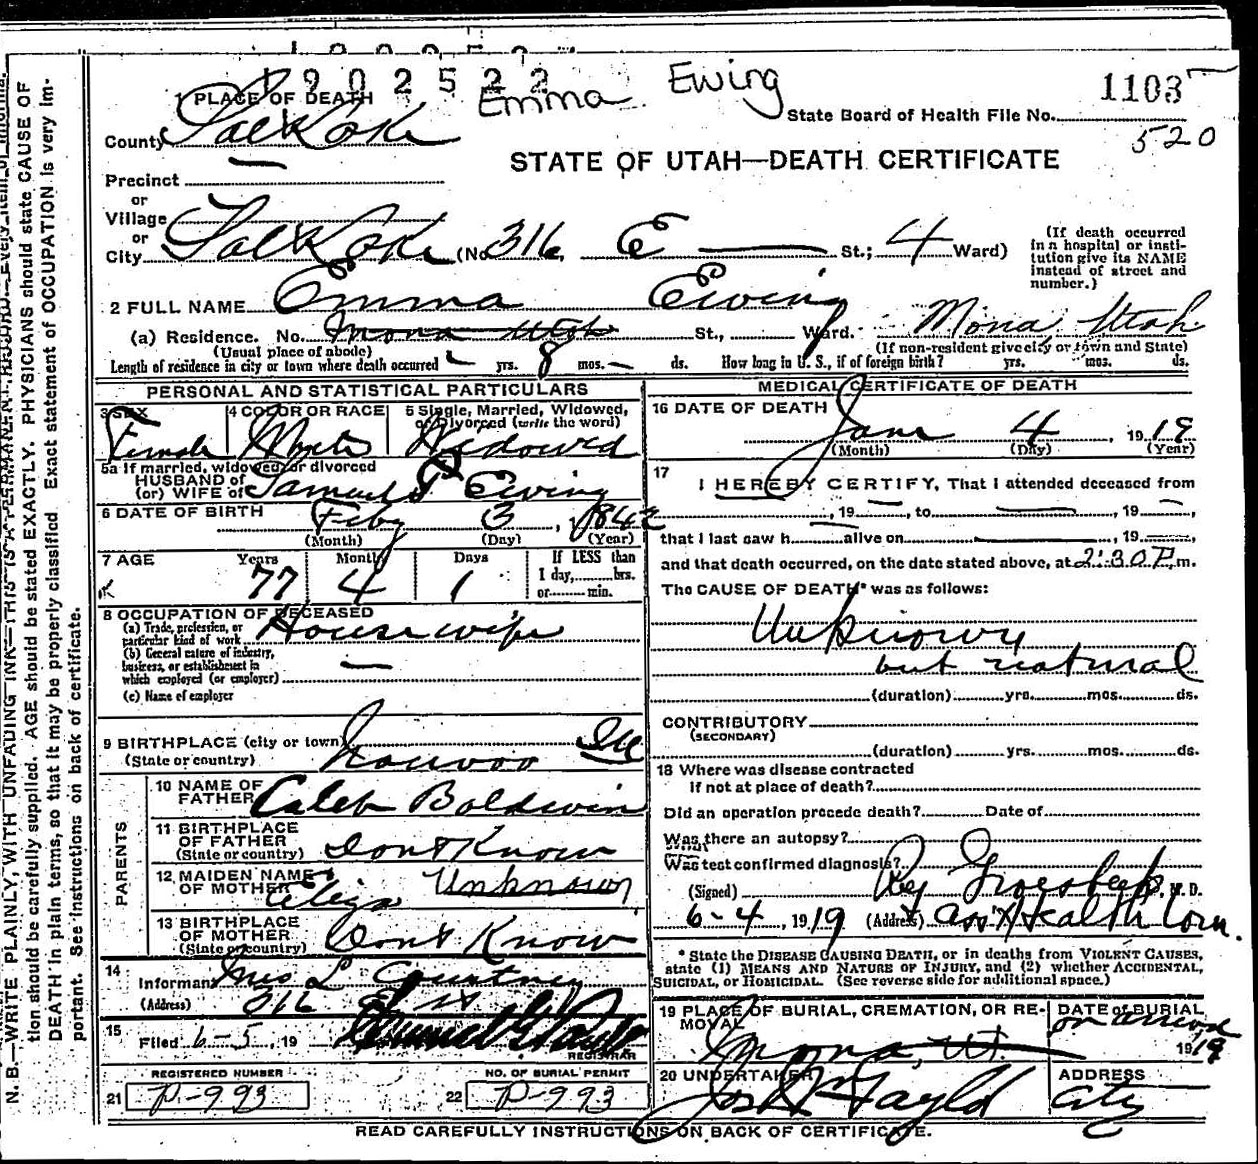 1902522
Emma Ewing
1103
State Board of Health File No.
520
1 PLACE OF DEATH
County Salt Lake
STATE OF UTAH—DEATH CERTIFICATE
Precinct
or
Village
or
City Salt Lake (No. 316 E St.; 4 Ward)
(If death occurred in a hospital or institution give its NAME instead of street and number.)
2 FULL NAME Emma Ewing
(a) Residence. No. Mona Utah St., Ward. Mona, Utah
(Usual place of abode) (If non-resident give city or town and State)
Length of residence in city or town where death occurred - yrs. 8 mos. — ds. How long in U. S., if of foreign birth? yrs. mos. ds.
PERSONAL AND STATISTICAL PARTICULARS
3 SEX Female
4 COLOR OR RACE White
5 Single, Married, Widowed, or Divorced (write the word) Widowed
5a If married, widowed, or divorced
HUSBAND of
(or) WIFE of Samuel Ewing
6 DATE OF BIRTH Feby 3, 1842
(Month) (Day) (Year)
7 AGE Years 77 Months 4 Days 1
If LESS than 1 day, hrs. or min.
8 OCCUPATION OF DECEASED
(a) Trade, profession, or particular kind of work Housewife
(b) General nature of industry, business, or establishment in which employed (or employer) —
(c) Name of employer
9 BIRTHPLACE (city or town) Nauvoo Ill
(State or country)
PARENTS
10 NAME OF FATHER Caleb Baldwin
11 BIRTHPLACE OF FATHER (State or country) Dont Know
12 MAIDEN NAME OF MOTHER Eliza Unknown
13 BIRTHPLACE OF MOTHER (State or country) Dont Know
14 Informant Mrs L Courtney
(Address) 316 E St
15 Filed 6-5, 19
REGISTRAR
REGISTERED NUMBER
21 P-993
NO. OF BURIAL PERMIT
22 P-993
MEDICAL CERTIFICATE OF DEATH
16 DATE OF DEATH June 4, 1919
(Month) (Day) (Year)
17 I HEREBY CERTIFY, That I attended deceased from
, 19 , to , 19 ,
that I last saw h alive on , 19 ,
and that death occurred, on the date stated above, at 2:30 P. m.
The CAUSE OF DEATH* was as follows:
Unknown
but natural
(duration) yrs. mos. ds.
CONTRIBUTORY
(SECONDARY)
(duration) yrs. mos. ds.
18 Where was disease contracted
If not at place of death?
Did an operation precede death? Date of
Was there an autopsy?
What test confirmed diagnosis?
(Signed) Groesbeck M. D.
6-4, 1919 (Address) Ass't Health Com.
* State the DISEASE CAUSING DEATH, or in deaths from VIOLENT CAUSES, state (1) MEANS AND NATURE OF INJURY, and (2) whether ACCIDENTAL, SUICIDAL, or HOMICIDAL. (See reverse side for additional space.)
19 PLACE OF BURIAL, CREMATION, OR REMOVAL
Mona, Ut.
DATE of BURIAL
on arrival
1919
20 UNDERTAKER
Jos Wm Taylor
ADDRESS
City
READ CAREFULLY INSTRUCTIONS ON BACK OF CERTIFICATE.
N. B.—WRITE PLAINLY, WITH UNFADING INK—THIS IS A PERMANENT RECORD. Every item of informa-
tion should be carefully supplied. AGE should be stated EXACTLY. PHYSICIANS should state CAUSE OF
DEATH in plain terms, so that it may be properly classified. Exact statement of OCCUPATION is very im-
portant. See instructions on back of certificate.